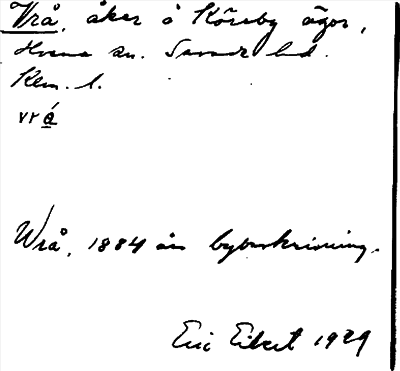 Vrå, åker å Köreby ägor,
Hvena sn. Sevede hd.
Klm. l.
vrá
Wrå, 1884 års bybeskrivning.
Eric Elket 1929